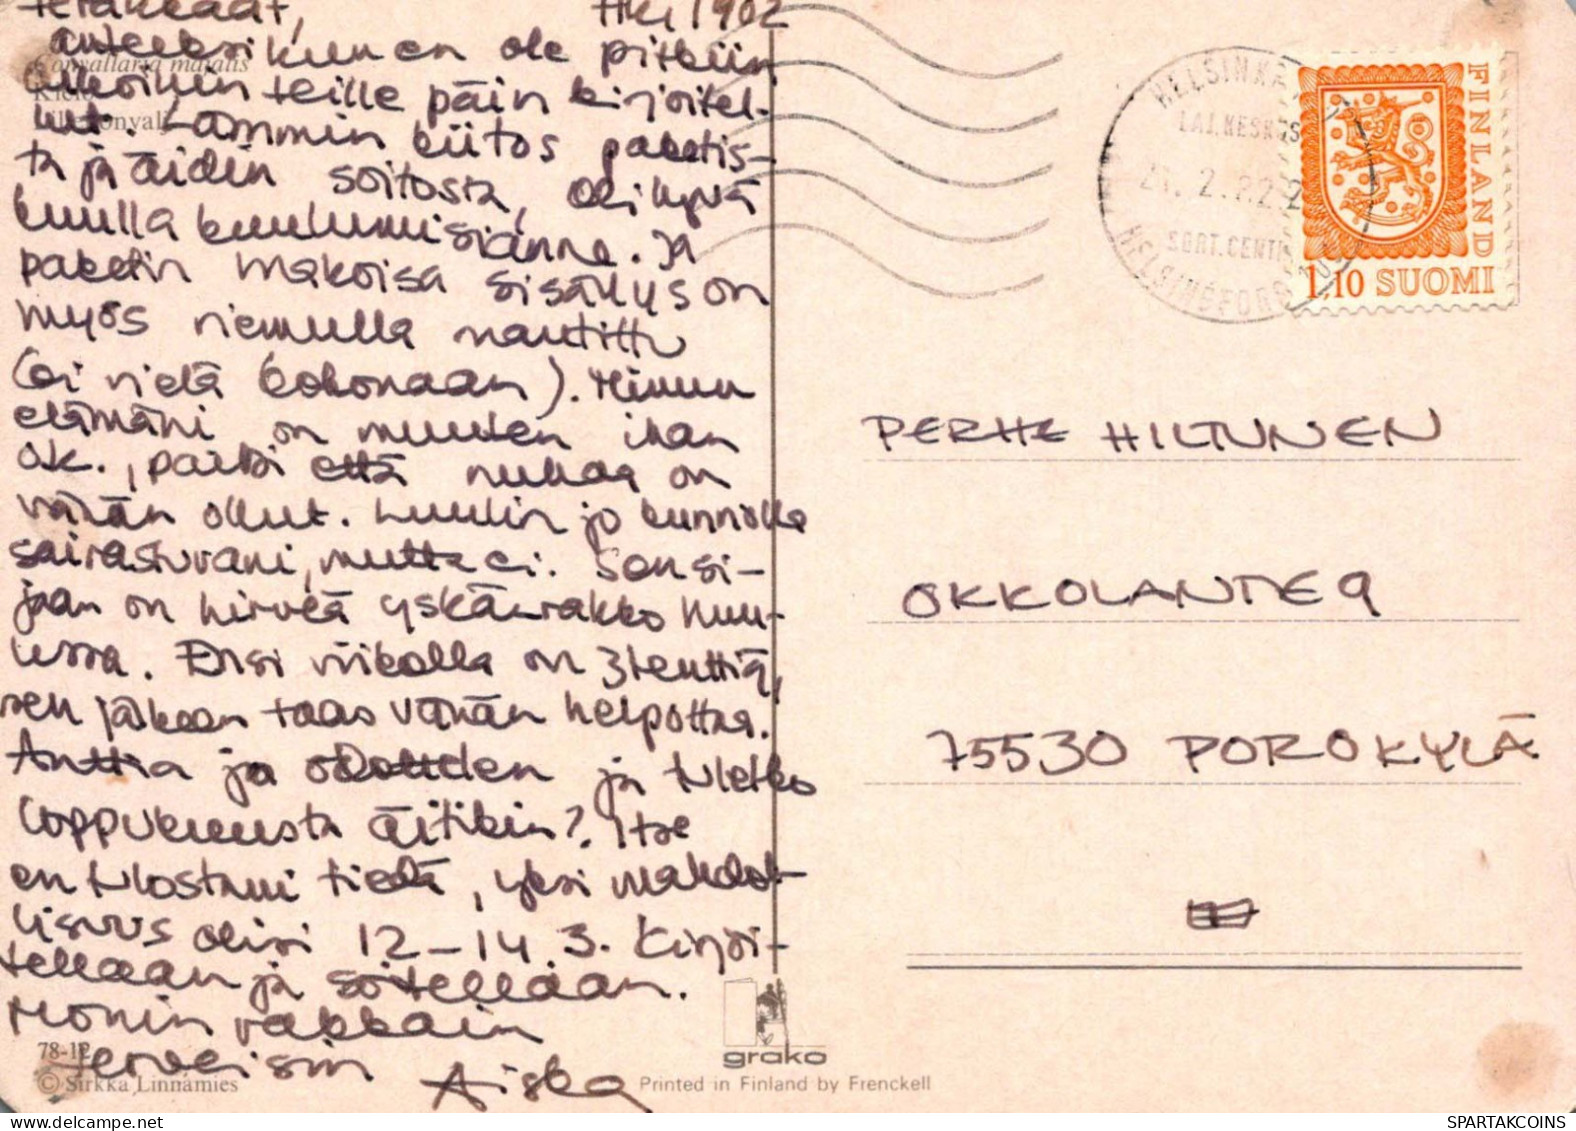 anteeksi kun en ole pitkiin
Convallaria majalis
aikoihin teille päin kirjoitel-
Kielo
lut. Lämmin kiitos paketis-
Liljekonvalj
ta ja äidin soitosta, oli hyvä
kuulla kuulumisianne. Ja
paketin makoisa sisällys on
myös riemulla nautittu
(ei vielä kokonaan). Minun
elämäni on muuten ihan
ok., paitsi että nuhaa on
vähän ollut. Luulin jo kunnolla
sairastuvani, mutta ei. Sensi-
jaan on hirveä yskänrakko huu-
lessa. Ensi viikolla on 3 tenttiä,
sen jälkeen taas vähän helpottaa.
Anttia jo odottelen ja tuletko
loppukuusta äitikin? Itse
en tulostani tiedä, yksi mahdol-
lisuus olisi 12-14.3. Kirjoi-
tellaan ja soitellaan.
Monin rakkain
terveisin Aiska
78-12
© Sirkka Linnamies
grako
Printed in Finland by Frenckell
HELSINKI
LAJ.KESKUS
2.82
SORT.CENTR
HELSINGFORS
FINLAND
1,10 SUOMI
PERHE HILTUNEN
OKKOLANTIE 9
75530 POROKYLÄ
SPARTAKCOINS
www.delcampe.net